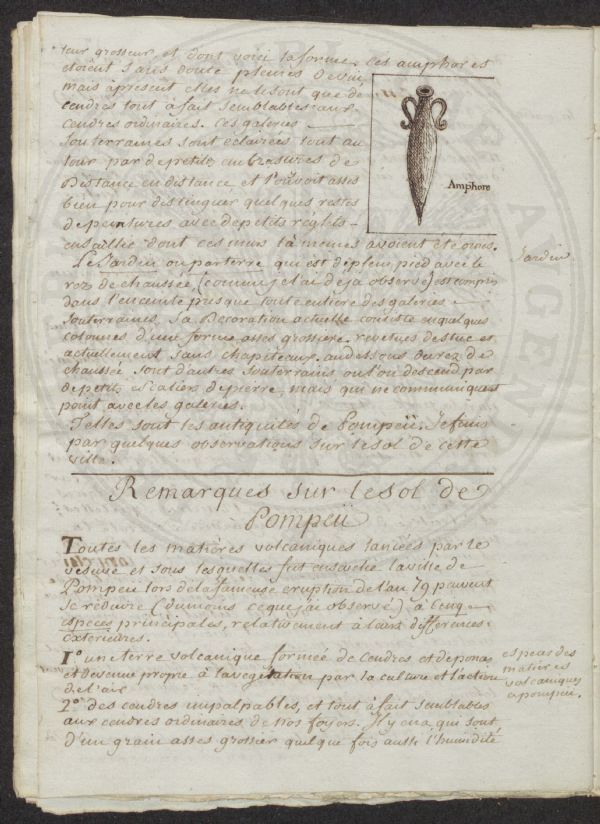 leur grosseur et dont voici la forme. Ces amphores
etoient sans doute pleines de vin
mais apresent elles ne le sont que de
cendres tout à fait semblables aux
cendres ordinaires. Ces galeries
souterraines sont eclairées tout au
tour par de petites embrasures de
Distance en distance et l'on voit asses
bien pour distinguer quelques restes
de peintures avec de petits réglets
en saillie dont ces murs là memes avoient été ornés.
Amphore
Le Jardin ou parterre qui est de plein pied avec le
Jardin
rez de chaussée (comme je l'ai deja observé) est compris
dans l'enceinte presque toute entiere des galeries
souterraines. Sa Decoration actuelle consiste en quelques
colonnes d'une forme asses grossiere revetues de stuc et
actuellement sans chapiteaux. au dessous du rez de
chaussée sont d'autres souterrains ou l'on descend par
de petits escaliers de pierre, mais qui ne communiquent
point avec les galeries.
Telles sont les antiquités de Pompeïi. Je finis
par quelques observations sur le sol de cette
ville.
Remarques sur le sol de
Pompeïi
Toutes les matières volcaniques lancées par le
vesuve et sous lesquelles fut ensevelie la ville de
Pompeii lors de la fameuse eruption de l'an 79 peuvent
se réduire (du moins ce que j'ai observé) à cinq
especes principales, relativement à leurs differences
exterieures.
1° une terre volcanique formée de cendres et de ponces
et devenue propre à la vegetation par la culture et l'action
de l'air
especes des
matières
volcaniques
a pompeii.
2° des cendres impalpables, et tout à fait semblables
aux cendres ordinaires de nos foyers. Il y en a qui sont
d'un grain asses grossier quelque fois aussi l'humidité